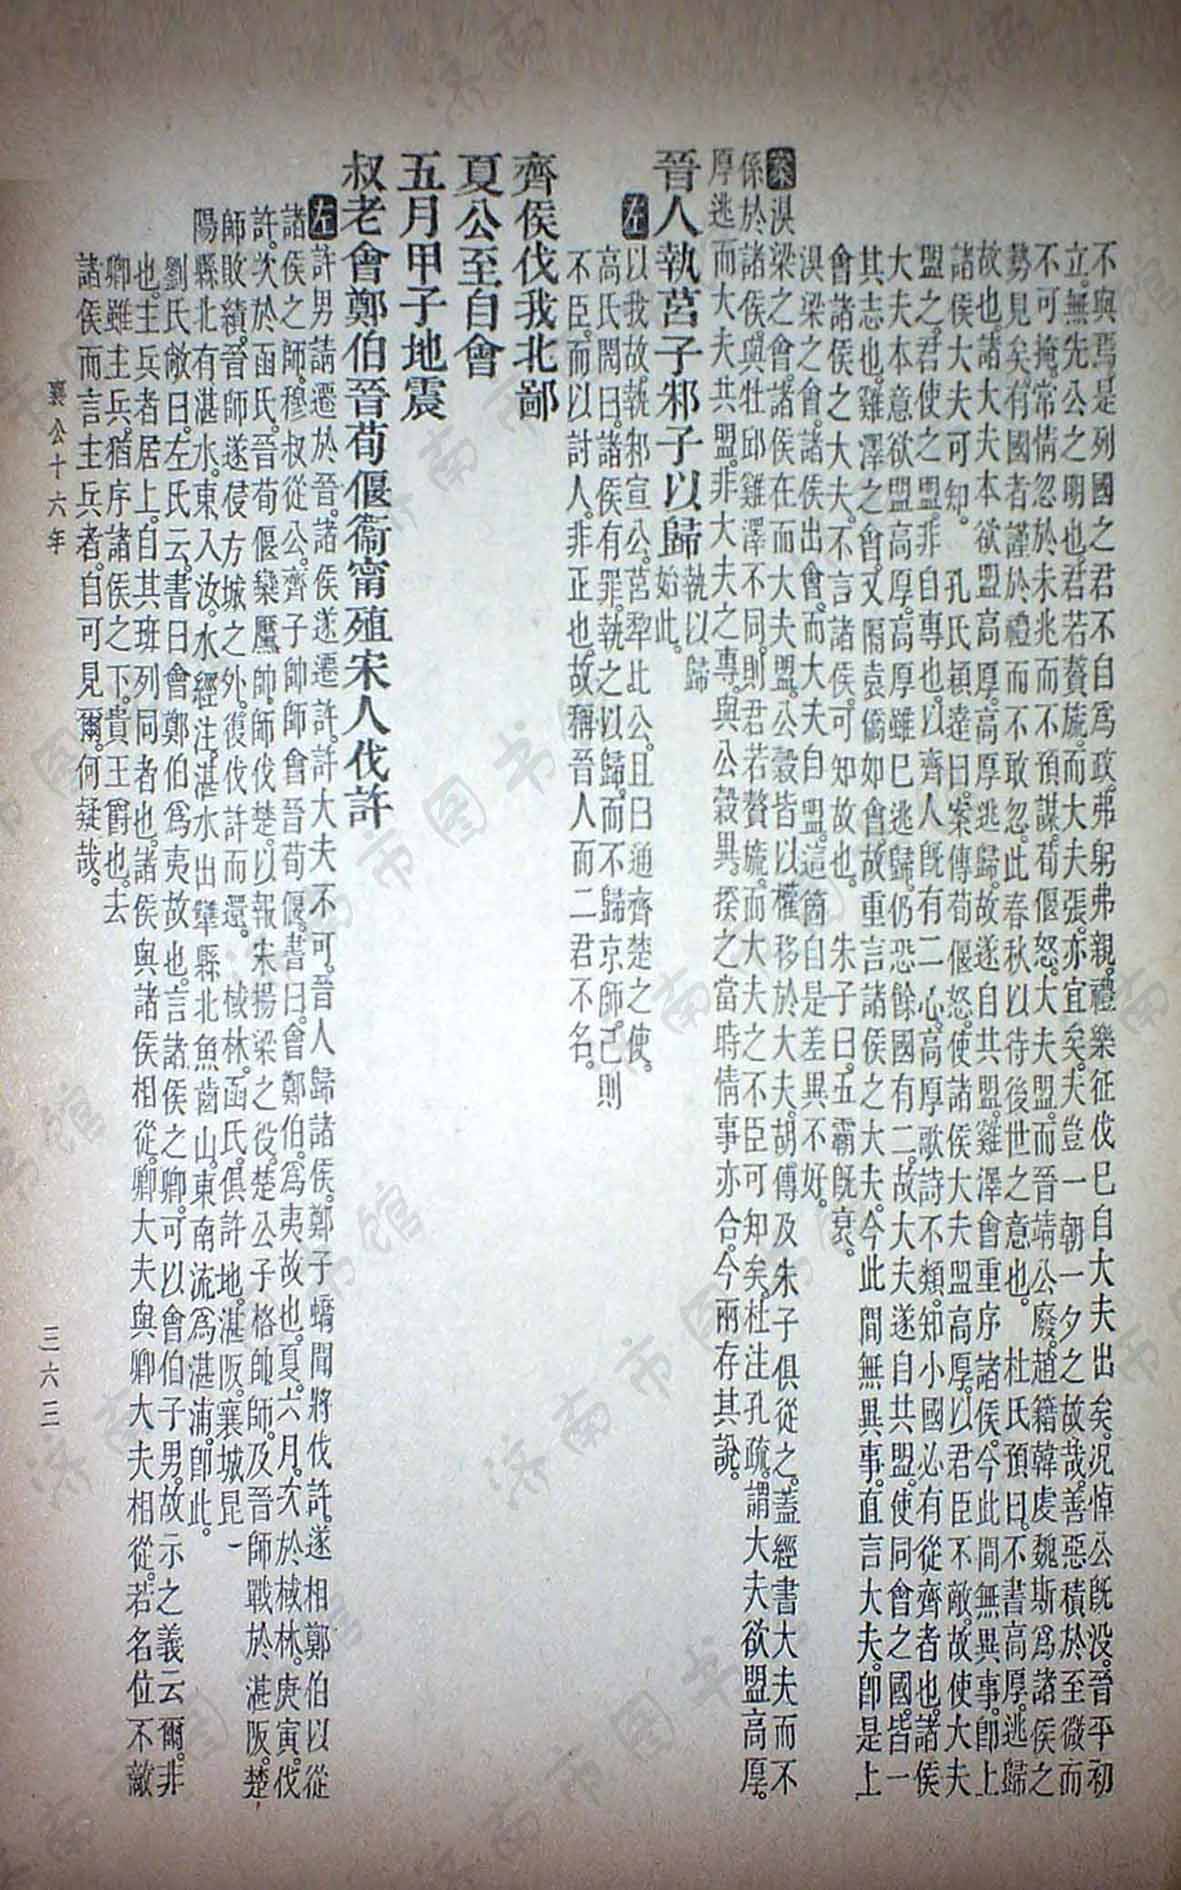 不與焉是列國之君不自爲政弗躬弗親禮樂征伐已自大夫出矣況悼公既没晉平初
立無先公之明也君若贅旒而大夫張亦宜矣夫豈一朝一夕之故哉善惡積於至微而
不可掩常情忽於未兆而不預謀荀偃怒大夫盟而晉靖公廢趙籍韓虔魏斯爲諸侯之
勢見矣有國者謹於禮而不敢忽此春秋以待後世之意也。　杜氏預曰不書高厚逃歸
故也諸大夫本欲盟高厚高厚逃歸故遂自共盟雞澤會重序諸侯今此間無異事卽上
諸侯大夫可知。　孔氏穎達曰案傳荀偃怒使諸侯大夫盟高厚以君臣不敵故使大夫
盟之君使之盟非自專也以齊人旣有二心高厚歌詩不類知小國必有從齊者也諸侯
大夫本意欲盟高厚高厚雖已逃歸仍恐餘國有二故大夫遂自共盟使同會之國皆一
其志也雞澤之會又隔袁僑如會故重言諸侯之大夫今此間無異事直言大夫卽是上
會諸侯之大夫不言諸侯可知故也。　朱子曰五霸旣衰。
湨梁之會諸侯出會而大夫自盟這箇自是差異不好。
案 湨梁之會諸侯在而大夫盟公穀皆以權移於大夫胡傳及朱子俱從之蓋經書大夫而不
係於諸侯與牡邱雞澤不同則君若贅旒而大夫之不臣可知矣杜注孔疏謂大夫欲盟高厚。
厚逃而大夫共盟非大夫之專與公穀異揆之當時情事亦合今兩存其說。
晉人執莒子邾子以歸 執以歸
始此。
左 以我故執邾宣公莒犂比公且曰通齊楚之使。
高氏閌曰諸侯有罪執之以歸而不歸京師己則
不臣而以討人非正也故稱晉人而二君不名。
齊侯伐我北鄙
夏公至自會
五月甲子地震
叔老會鄭伯晉荀偃衞甯殖宋人伐許
左 許男請遷於晉諸侯遂遷許許大夫不可晉人歸諸侯鄭子蟜聞將伐許遂相鄭伯以從
諸侯之師穆叔從公齊子帥師會晉荀偃書曰會鄭伯爲夷故也夏六月次於棫林庚寅伐
許次於函氏晉荀偃欒黶帥師伐楚以報宋揚梁之役楚公子格帥師及晉師戰於湛阪楚
師敗績晉師遂侵方城之外復伐許而還。　棫林函氏俱許地湛阪襄城昆
陽縣北有湛水東入汝水經注湛水出犨縣北魚齒山東南流爲湛浦卽此。
劉氏敞曰左氏云書曰會鄭伯爲夷故也言諸侯之卿可以會伯子男故示之義云爾非
也主兵者居上自其班列同者也諸侯與諸侯相從卿大夫與卿大夫相從若名位不敵
卿雖主兵猶序諸侯之下貴王爵也去
諸侯而言主兵者自可見爾何疑哉。
襄公十六年
三六三
济南市图书馆